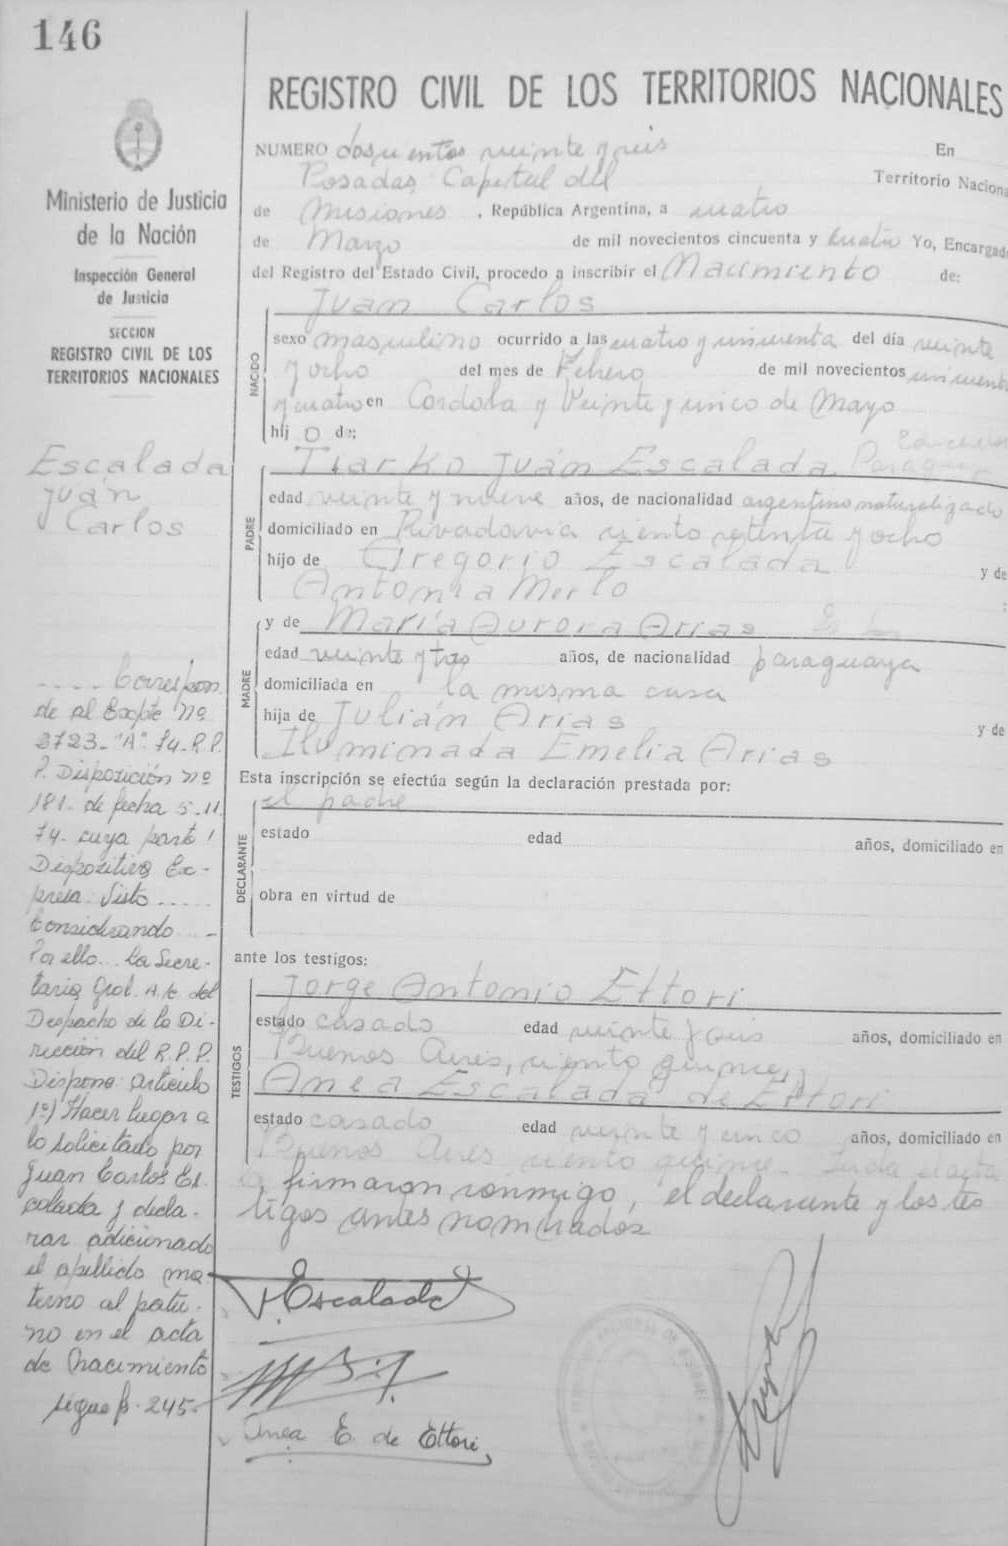 146
REGISTRO CIVIL DE LOS TERRITORIOS NACIONALES
Ministerio de Justicia
de la Nación
Inspección General
de Justicia
SECCION
REGISTRO CIVIL DE LOS
TERRITORIOS NACIONALES
Escalada
Juán
Carlos
Correspon
de al Expte Nº
2723-"A"-74-R.P.
P. Disposición Nº
181- de fecha 5-11
74- cuya parte
Dispositiva Ex-
presa: Visto
Considerando
Por ello... La Secre-
taria Gral. A/c del
Despacho de la Di-
rección del R.P.P.
Dispone: artículo
1º) Hacer lugar a
lo solicitado por
Juan Carlos Es
calada y decla-
rar adicionado
el apellido ma-
terno al pater-
no en el acta
de Nacimiento
sigue f. 245-
NUMERO doscientos veinte y seis En
Posadas Capital del Territorio Naciona
de Misiones , República Argentina, a cuatro
de Marzo de mil novecientos cincuenta y cuatro Yo, Encargad
del Registro del Estado Civil, procedo a inscribir el Nacimiento de:
NACIDO
Juan Carlos
sexo masculino ocurrido a las cuatro y cincuenta del día veinte
y ocho del mes de Febrero de mil novecientos cincuenta
y cuatro en Cordoba y Veinte y cinco de Mayo
hij o de:
PADRE
Juán Escalada
edad veinte y nueve años, de nacionalidad argentino naturalizado
domiciliado en Rivadavia ciento setenta y ocho
hijo de Gregorio Escalada y de
Antonia Merlo
MADRE
y de María Aurora Arias
edad veinte y tres años, de nacionalidad paraguaya
domiciliada en la misma casa
hija de Julián Arias y de
Iluminada Emelia Arias
Esta inscripción se efectúa según la declaración prestada por:
DECLARANTE
el padre
estado edad años, domiciliado en
obra en virtud de
ante los testigos:
TESTIGOS
Jorge Antonio Ettori
estado casado edad veinte y seis años, domiciliado en
Buenos Aires, ciento quince, y
Anea Escalada de Ettori
estado casado edad veinte y cinco años, domiciliado en
Buenos Aires ciento quince- Leida el acta
la firmaron conmigo, el declarante y los tes
tigos antes nombrados
Escalada
Anea E. de Ettori